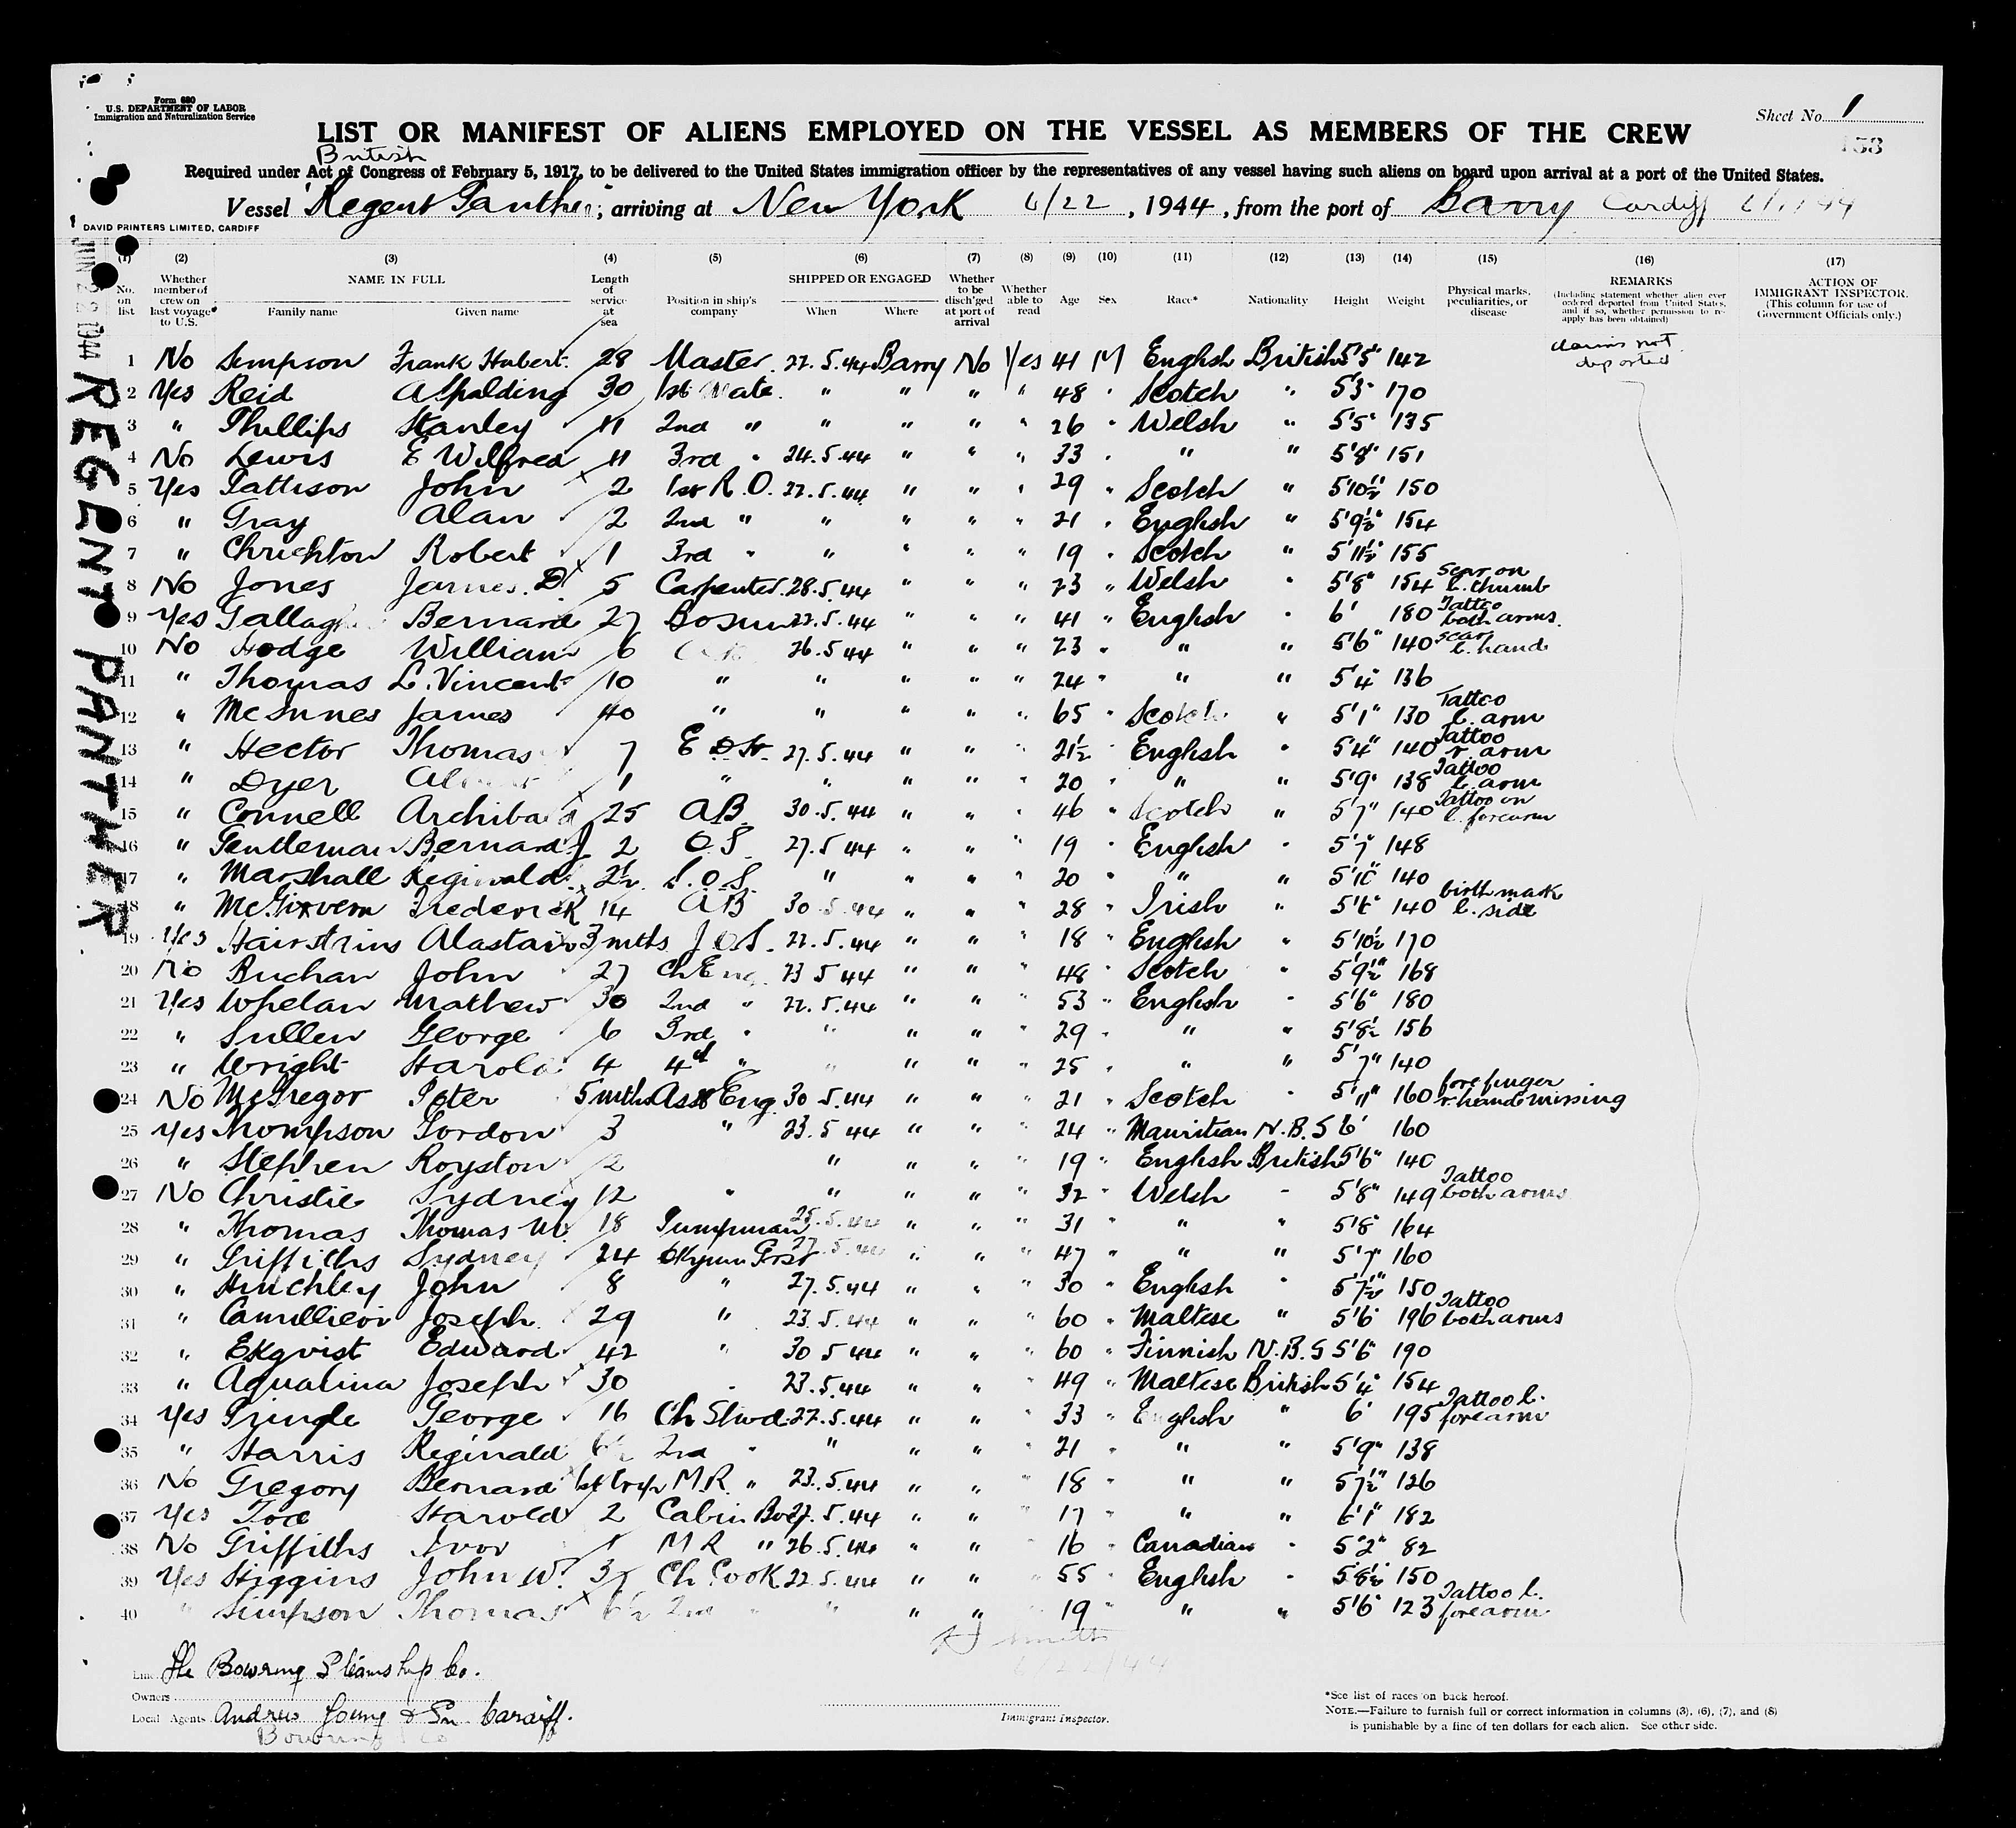 Form 680
U.S. DEPARTMENT OF LABOR
Immigration and Naturalization Service
Sheet No. 1
158
LIST OR MANIFEST OF ALIENS EMPLOYED ON THE VESSEL AS MEMBERS OF THE CREW
British
Required under Act of Congress of February 5, 1917, to be delivered to the United States immigration officer by the representatives of any vessel having such aliens on board upon arrival at a port of the United States.
Vessel "Regent Panther", arriving at New York 6/22, 1944, from the port of Barry Cardiff
DAVID PRINTERS LIMITED, CARDIFF
JUN 22 1944 REGENT PANTHER
(1) (2) (3) (4) (5) (6) (7) (8) (9) (10) (11) (12) (13) (14) (15) (16) (17)
No. on list Whether member of crew on last voyage* to U.S. NAME IN FULL Family name Given name Length of service at sea Position in ship's company SHIPPED OR ENGAGED When Where Whether to be disch'ged at port of arrival Whether able to read Age Sex Race* Nationality Height Weight Physical marks, peculiarities, or disease REMARKS (Including statement whether alien ever ordered deported from United States, and if so, whether permission to re-apply has been obtained) ACTION OF IMMIGRANT INSPECTOR. (This column for use of Government Officials only.)
1 No Simpson Frank Hubert 28 Master 22.5.44 Barry No Yes 41 M English British 5'5" 142 claims not deported
2 Yes Reid A Spalding 30 1st Mate " " " " 48 " Scotch " 5'3" 170
3 " Phillips Stanley 11 2nd " " " " " 26 " Welsh " 5'5" 135
4 No Lewis E Wilfred 11 3rd " 24.5.44 " " " 33 " " " 5'8" 151
5 Yes Pattison John 2 1st R.O. 22.5.44 " " " 29 " Scotch " 5'10½" 150
6 " Gray Alan 2 2nd " " " " " 21 " English " 5'9½" 154
7 " Chrichton Robert 1 3rd " " " " " 19 " Scotch " 5'11½" 155
8 No Jones James. D. 5 Carpenter 28.5.44 " " " 23 " Welsh " 5'8" 154 scar on l. thumb
9 Yes Bernard 27 Bosun 22.5.44 " " " 41 " English " 6' 180 Tattoo both arms.
10 No Hodge William 6 26.5.44 " " " 23 " " " 5'6" 140 scar l. hand
11 " Thomas L. Vincent 10 " " " " " 24 " " " 5'4" 136
12 " McInnes James 40 " " " " " 65 " Scotch " 5'1" 130 Tattoo l. arm
13 " Hector Thomas 7 27.5.44 " " " 21½ " English " 5'4" 140 Tattoo r. arm
14 " Dyer 1 " " " " " 20 " " " 5'9" 138 Tattoo l. arm
15 " Connell Archibald 25 AB 30.5.44 " " " 46 " Scotch " 5'7" 140 Tattoo on l. forearm
16 " Gentleman Bernard J 2 O.S. 27.5.44 " " " 19 " English " 5'7" 148
17 " Marshall Reginald 2½ S.O.S. " " " " 20 " " " 5'10" 140
18 " McGivern Frederick 14 AB 30.5.44 " " " 28 " Irish " 5'6" 140 birth mark l. side
19 Yes Hairstains Alastair 3 mths J.O.S. 22.5.44 " " " 18 " English " 5'10½ 170
20 No Buchan John 27 Ch Eng. 23 5 44 " " " 48 " Scotch " 5'9½" 168
21 Yes Whelan Mathew 30 2nd " 22.5.44 " " " 53 " English " 5'6" 180
22 " Sullen George 6 3rd " " " " " 29 " " " 5'8½ 156
23 " Wright Harold 4 4th " " " " " 25 " " " 5'7" 140
24 No McGregor Peter 5 mths Asst Eng. 30.5.44 " " " 21 " Scotch " 5'11" 160 forefinger r. hand missing
25 Yes Thompson Gordon 3 " 23.5.44 " " " 24 " Mauritian N.B.S 6' 160
26 " Stephen Royston 2 " " " " 19 " English British 5'6" 140
27 No Christie Sydney 12 " " " " " 32 " Welsh " 5'8" 149 Tattoo both arms
28 " Thomas Thomas W. 18 Pumpman 25.5.44 " " " 31 " " " 5'8" 164
29 " Griffiths Sydney 24 27.5.44 " " " 47 " " " 5'7" 160
30 " Hinchley John 8 " 27.5.44 " " " 30 " English " 5'7½" 150
31 " Camillieri Joseph 29 " 23.5.44 " " " 60 " Maltese " 5'6" 196 Tattoo both arms
32 " Ekqvist Edward 42 " 30 5 44 " " " 60 " Finnish N.B.S 5'6" 190
33 " Aqualina Joseph 30 " 23.5.44 " " " 49 " Maltese British 5'4" 154
34 Yes Pringle George 16 Ch Stwd 22.5.44 " " " 33 " English " 6' 195 Tattoo l. forearm
35 " Harris Reginald 2nd " " " " " 21 " " " 5'9" 138
36 No Gregory Bernard 1st trip M.R. " 23.5.44 " " " 18 " " " 5'7½" 126
37 Yes Harold 2 Cabin Boy 27.5.44 " " " 17 " " " 6'1" 182
38 No Griffiths Ivor 1 M R " 26.5.44 " " 16 " Canadian " 5'2" 82
39 Yes Higgins John W. Ch Cook 22.5.44 " " " 55 " English " 5'8½" 150
40 " Simpson Thomas 2nd " " " " 19 " " " 5'6" 123 Tattoo l. forearm
Smith
6/22/44
Line The Bowring Steamship Co.
Owners
Local Agents Andrew Young & Sn. Cardiff.
Bowring Co
Immigrant Inspector.
*See list of races on back hereof.
NOTE.—Failure to furnish full or correct information in columns (3), (6), (7), and (8)
is punishable by a fine of ten dollars for each alien. See other side.